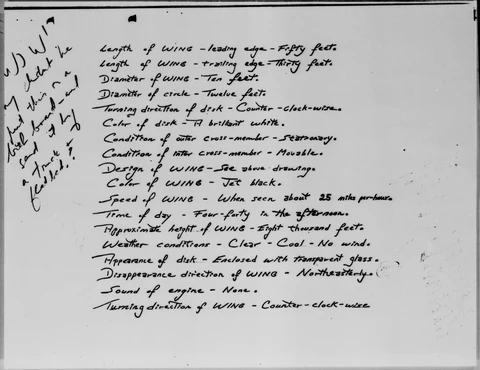 Length of WING - leading edge - Fifty feet.
Length of WING - trailing edge - Thirty feet.
Diameter of WING - Ten feet.
Diameter of circle - Twelve feet.
Turning direction of disk - Counter-clock-wise.
Color of disk - A brilliant white.
Condition of outer cross-member - Stationary.
Condition of inter cross-member - Movable.
Design of WING - See above drawing.
Color of WING - Jet black.
Speed of WING - When seen about 25 miles per hour.
Time of day - Four-forty in the afternoon.
Approximate height of WING - Eight thousand feet.
Weather conditions - Clear - Cool - No wind.
Appearance of disk - Enclosed with transparent glass.
Disappearance direction of WING - Northeasterly.
Sound of engine - None.
Turning direction of WING - Counter-clock-wise
why didn't he
put this on a
board - and
send it by
a truck